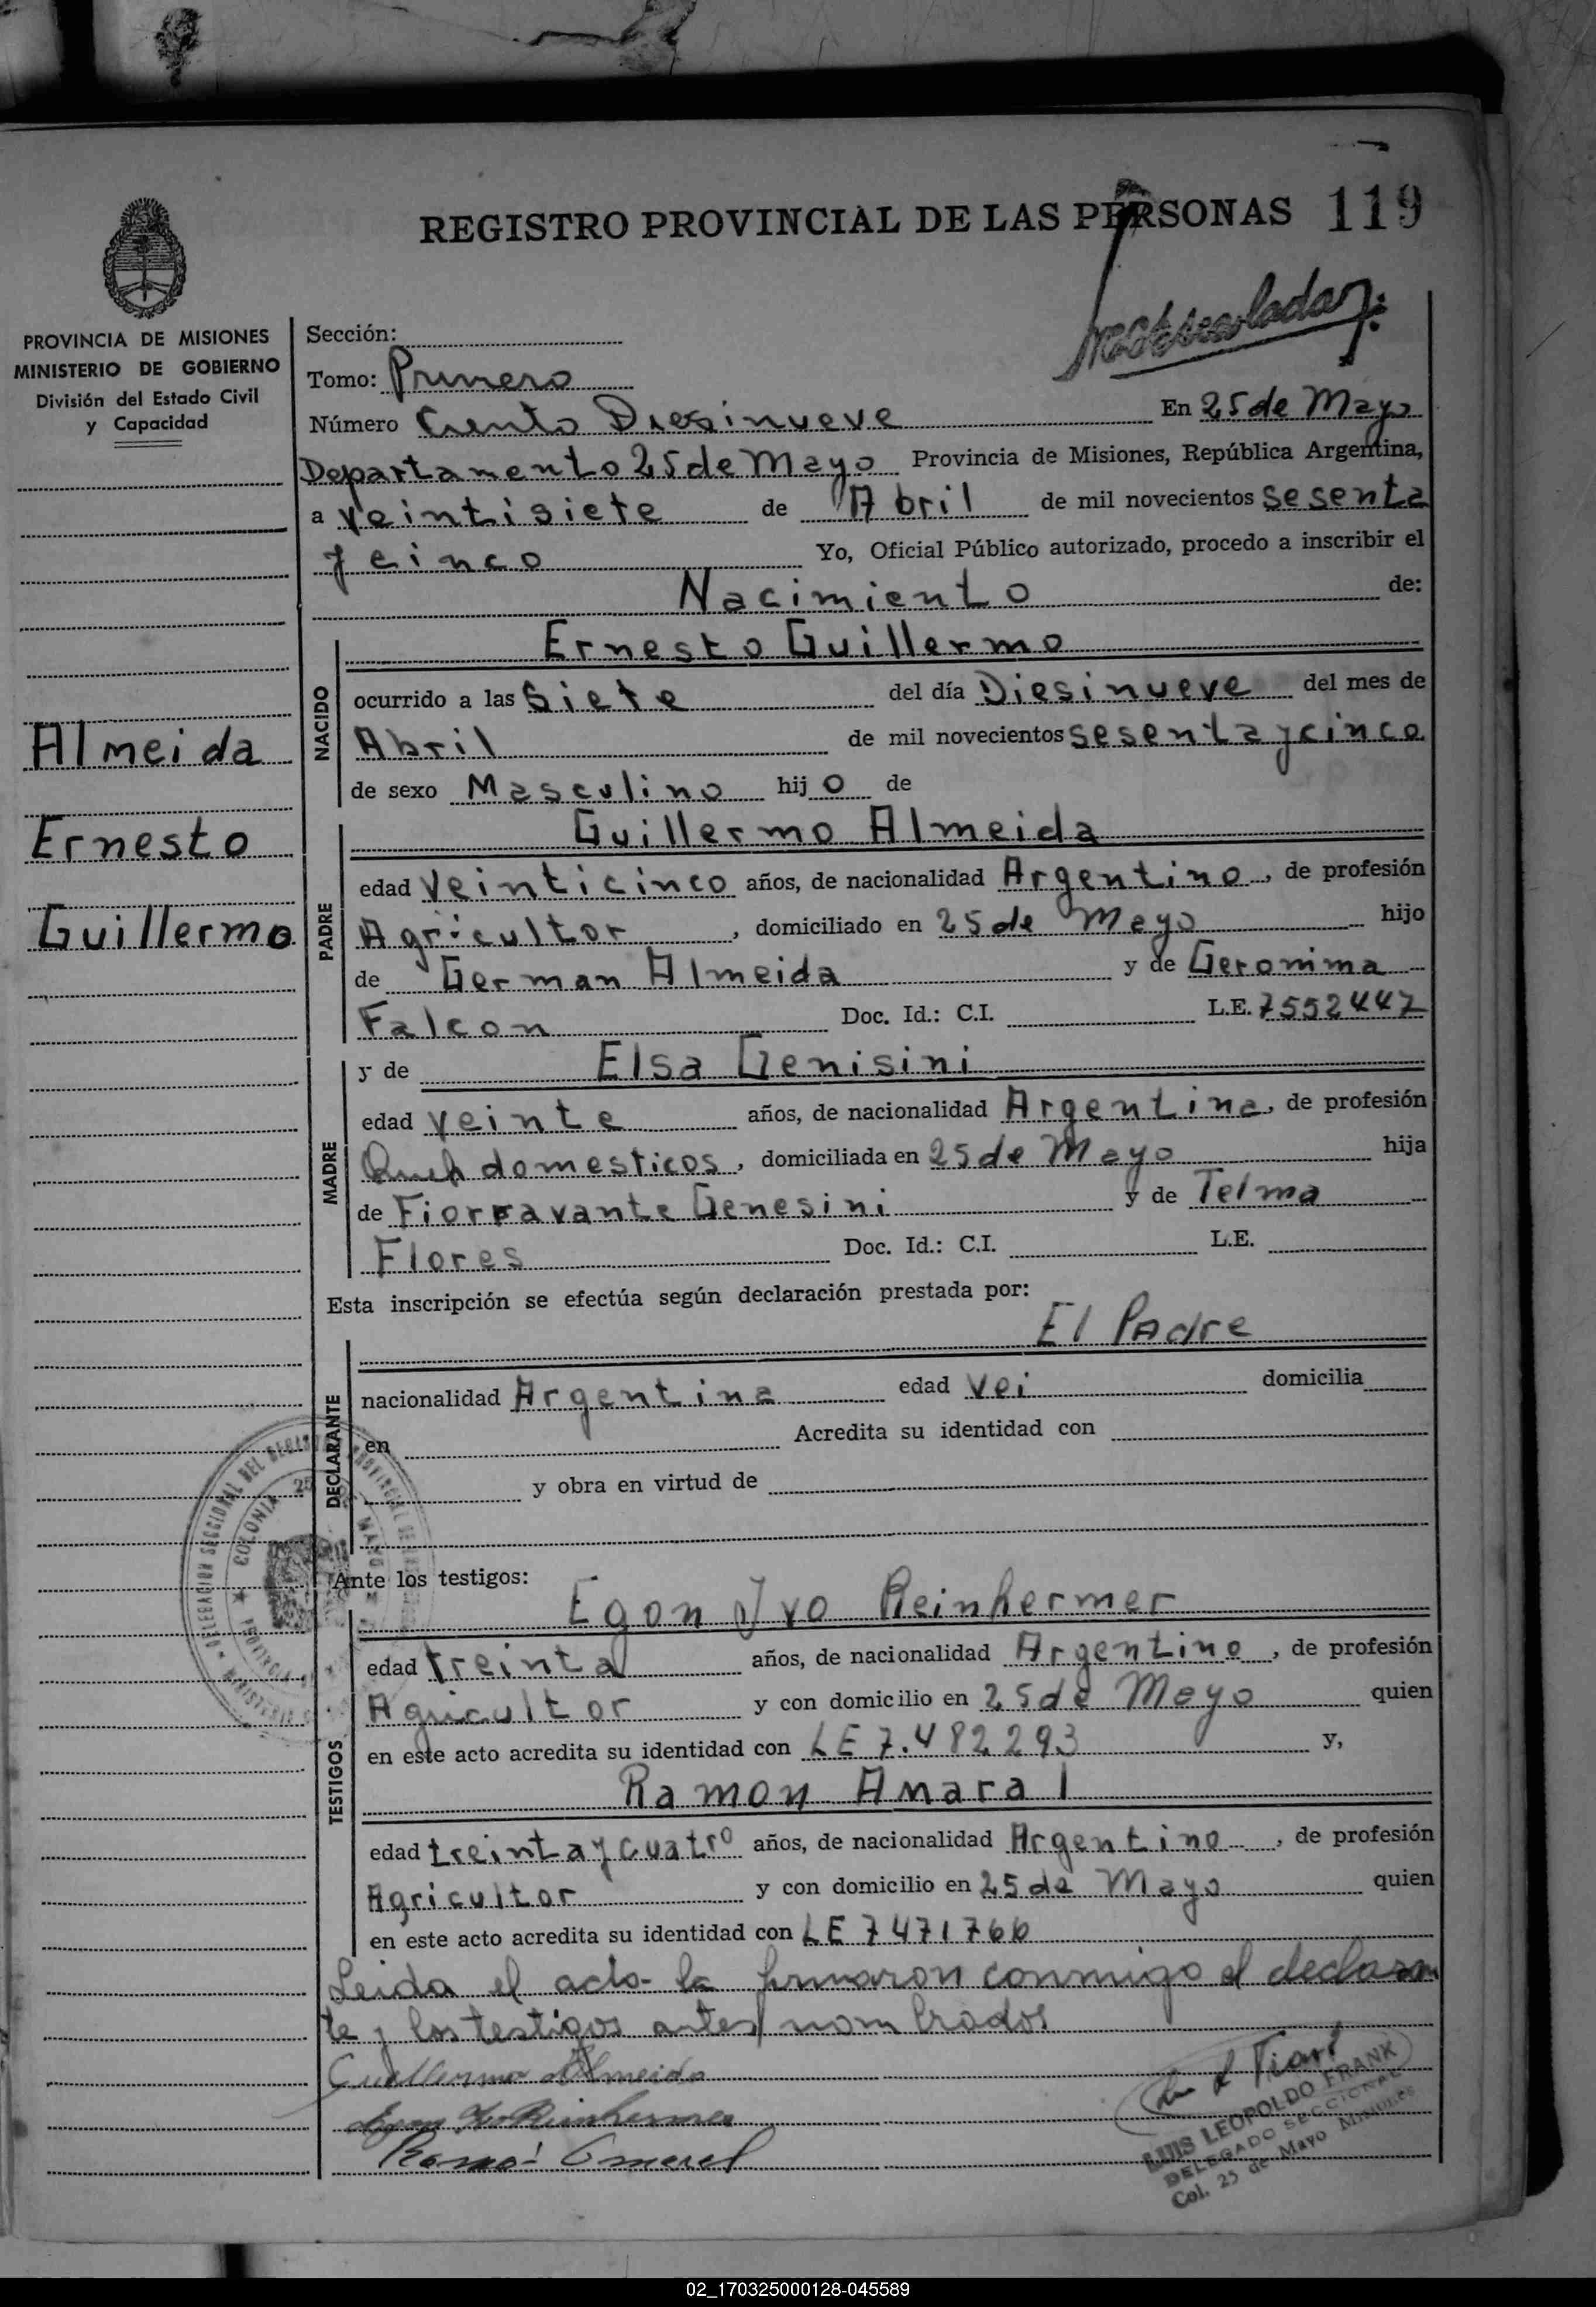 REGISTRO PROVINCIAL DE LAS PERSONAS 119
PROVINCIA DE MISIONES
MINISTERIO DE GOBIERNO
División del Estado Civil
y Capacidad
Almeida
Ernesto
Guillermo
Sección:
Tomo: Primero
Número Ciento Diesinueve En 25 de Mayo
Departamento 25 de Mayo Provincia de Misiones, República Argentina,
a veintisiete de Abril de mil novecientos sesenta
y cinco Yo, Oficial Público autorizado, procedo a inscribir el
Nacimiento de:
NACIDO
Ernesto Guillermo
ocurrido a las Siete del día Diesinueve del mes de
Abril de mil novecientos sesenta y cinco
de sexo Masculino hijo de
PADRE
Guillermo Almeida
edad veinticinco años, de nacionalidad Argentino, de profesión
Agricultor, domiciliado en 25 de Mayo hijo
de German Almeida y de Geronima
Falcon Doc. Id.: C.I. L.E. 7552447
MADRE
y de Elsa Genisini
edad veinte años, de nacionalidad Argentina, de profesión
domesticos, domiciliada en 25 de Mayo hija
de Fiorravante Genesini y de Telma
Flores Doc. Id.: C.I. L.E.
Esta inscripción se efectúa según declaración prestada por:
El Padre
DECLARANTE
nacionalidad Argentina edad vei domicilia
en Acredita su identidad con
y obra en virtud de
Ante los testigos:
TESTIGOS
Egon Ivo Reinhermer
edad treinta años, de nacionalidad Argentino, de profesión
Agricultor y con domicilio en 25 de Mayo quien
en este acto acredita su identidad con LE 7.482293 y,
Ramon Amaral
edad treinta y cuatro años, de nacionalidad Argentino, de profesión
Agricultor y con domicilio en 25 de Mayo quien
en este acto acredita su identidad con LE 7471766
Leida el acta la firmaron conmigo el declaran
te y los testigos antes nombrados
Guillermo Almeida
Egon Ivo Reinhermer
Ramon Amarel
LUIS LEOPOLDO FRANK
DELEGADO SECCIONAL
Col. 25 de Mayo Misiones
02_170325000128-045589